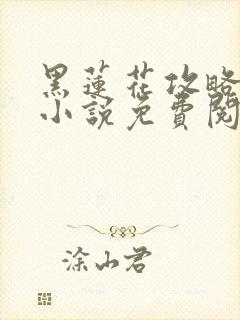 黑蓮花攻略
小說免費閱
涂山君